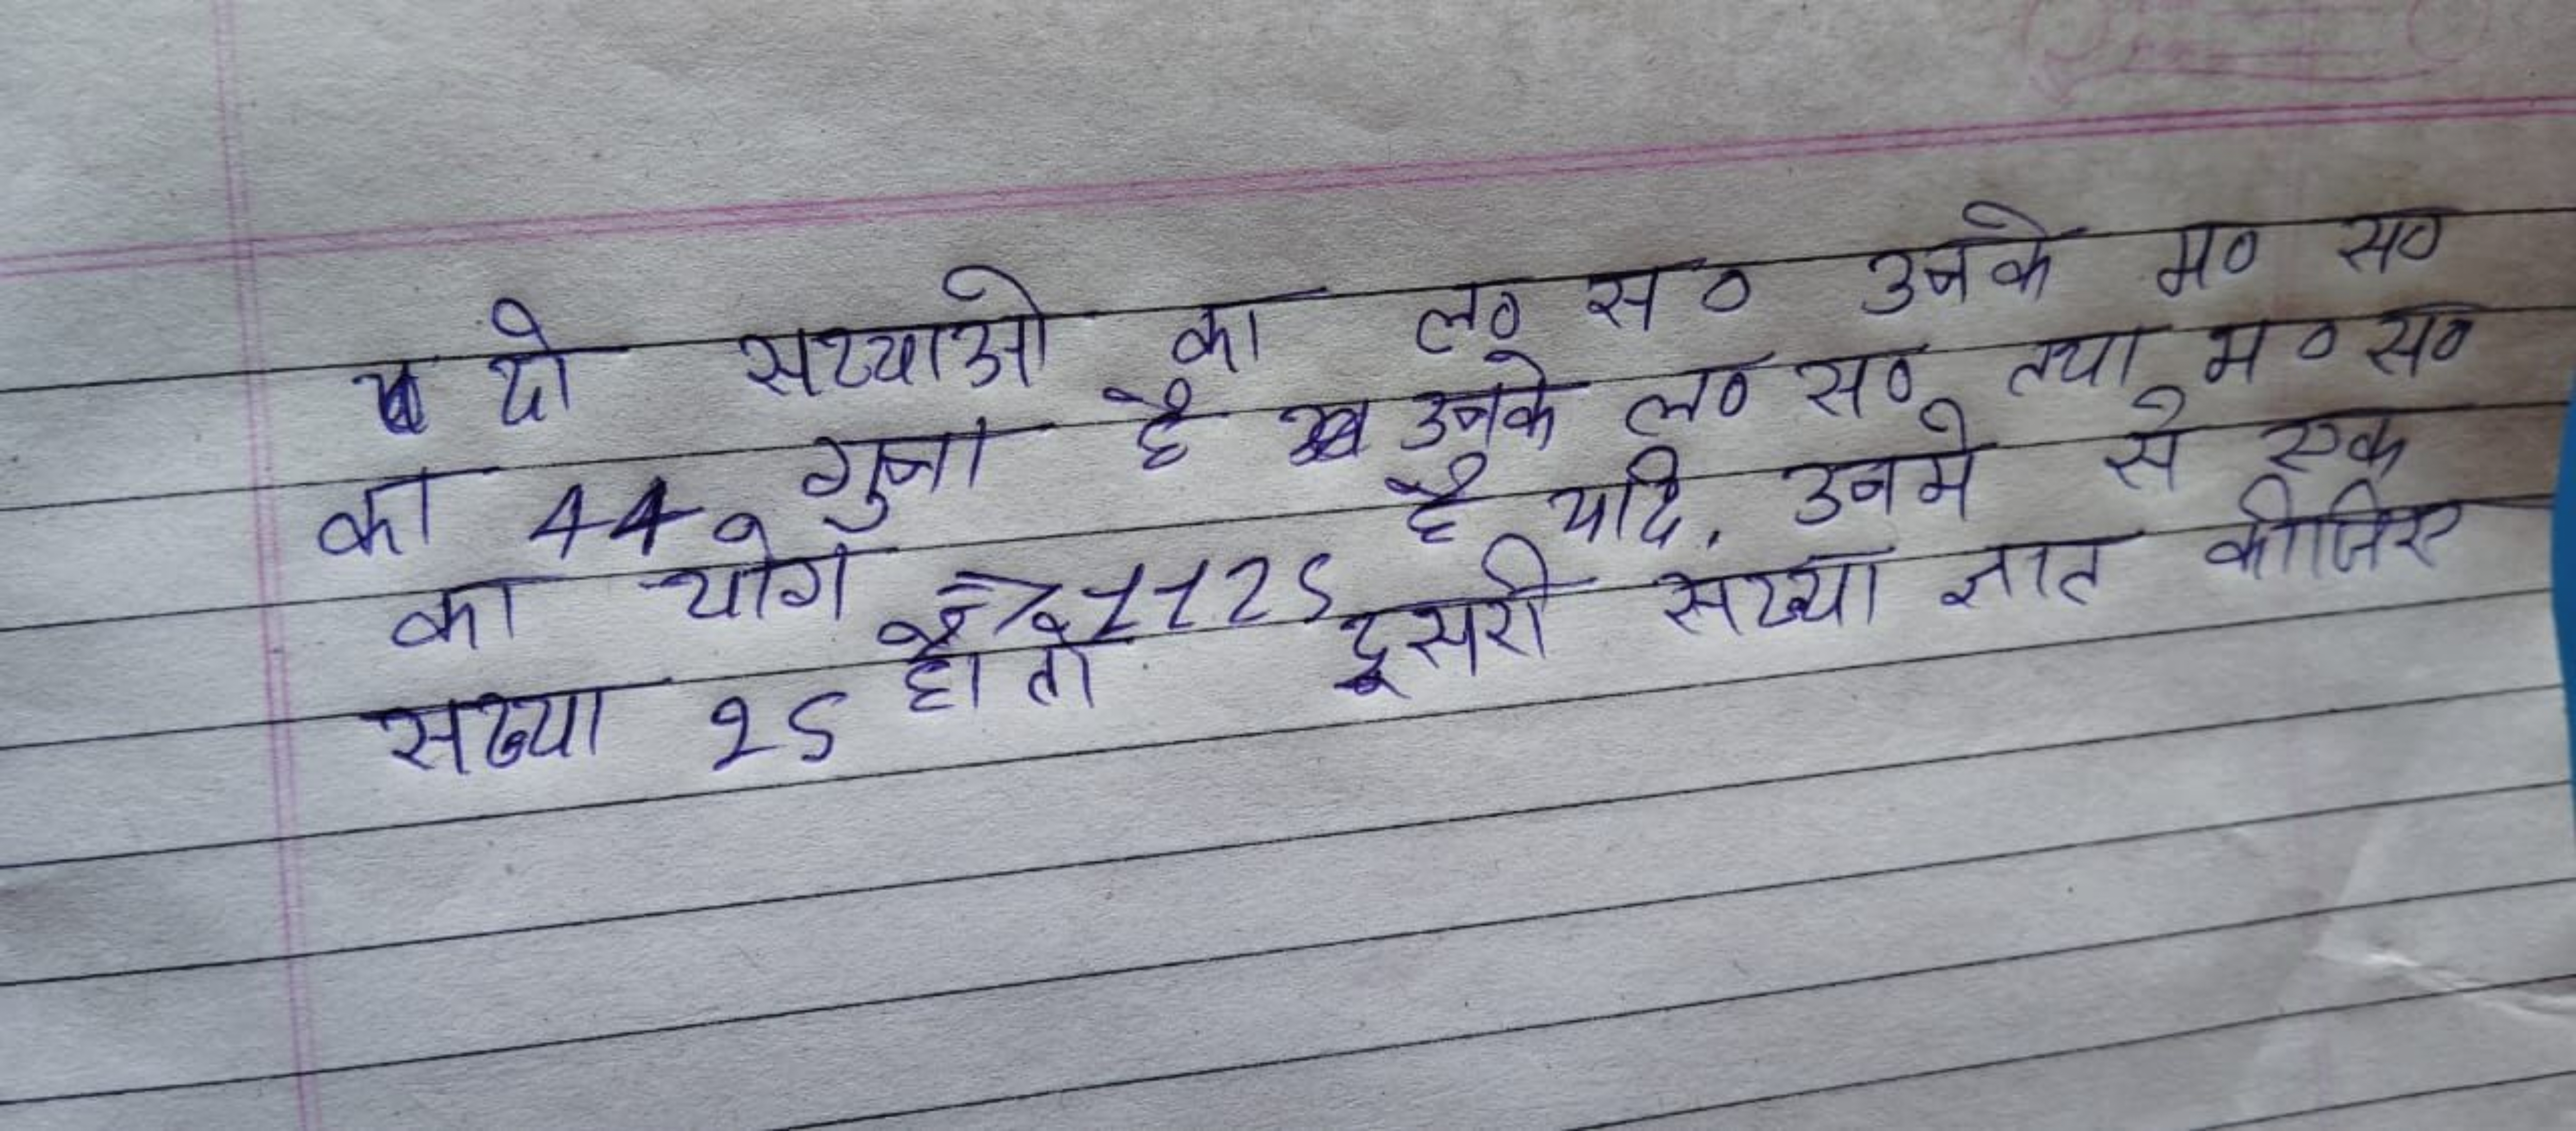 दो सख्याओ का ल० स० उनके म० स०
का 44 गुना है उनके ल० स० तथा म० स०
का योग => 1125 है यदि, उनमे से एक
सख्या 25 हो तो दूसरी सख्या ज्ञात कीजिए